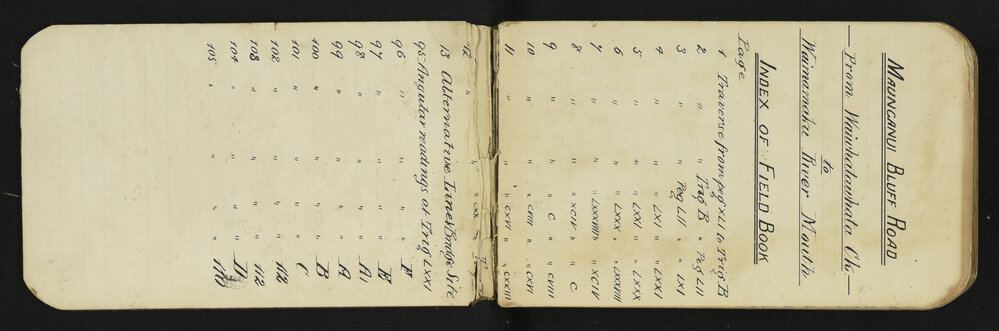 MAUNGANUI BLUFF ROAD
— From Waiwhatawhata Ch. —
to
Waimamaku River Mouth
INDEX OF FIELD BOOK
Page
1 Traverse from peg XLI to Trig. B
2 " Trig B " Peg LII
3 " Peg LII " LXI
4 " " LXI " LXXI
5 " " LXXI " LXXX
6 " " LXXX " LXXXVIII
7 " " LXXXVIII " XCIV
8 " " XCIV " C
9 " " C " CVIII
10 " " CVIII " CXVI
11 " " CXVI " CXXIII
12 " " " CXX "
13 Alternative Lines Bridge Site
95 Angular readings at Trig LXXI
96 " " " " F
97 " " " " E
98 " " " " A1
99 " " " " A
100 " " " " B
101 " " " " C
102 " " " " 112
103 " " " " 112
104 " " " " D
105 " " " "